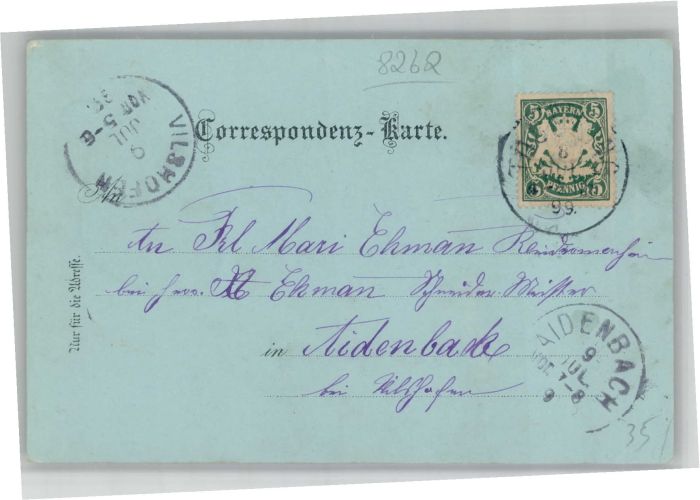 8262
5 BAYERN 5
5 PFENNIG 5
8
99
VILSHOFEN
9
JUL
VOR 5-6
99
Correspondenz-Karte.
An
An Frl Mari Ehman
bei Ehman Schneider Meister
in Aidenbach
bei Vilshofen
Nur für die Adresse.
AIDENBACH
9
JUL
VOR. 7-8
9
35